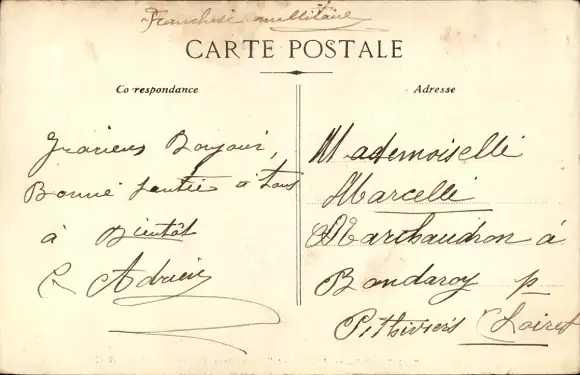 Franchise millitaire
CARTE POSTALE
Correspondance
Gracieux Bonjour,
Bonne Santée a tous
à Bientôt
Adrien
Adresse
Mademoiselle
Marcelle
Marchaudon à
Bondaroy p
Pithiviers Loiret